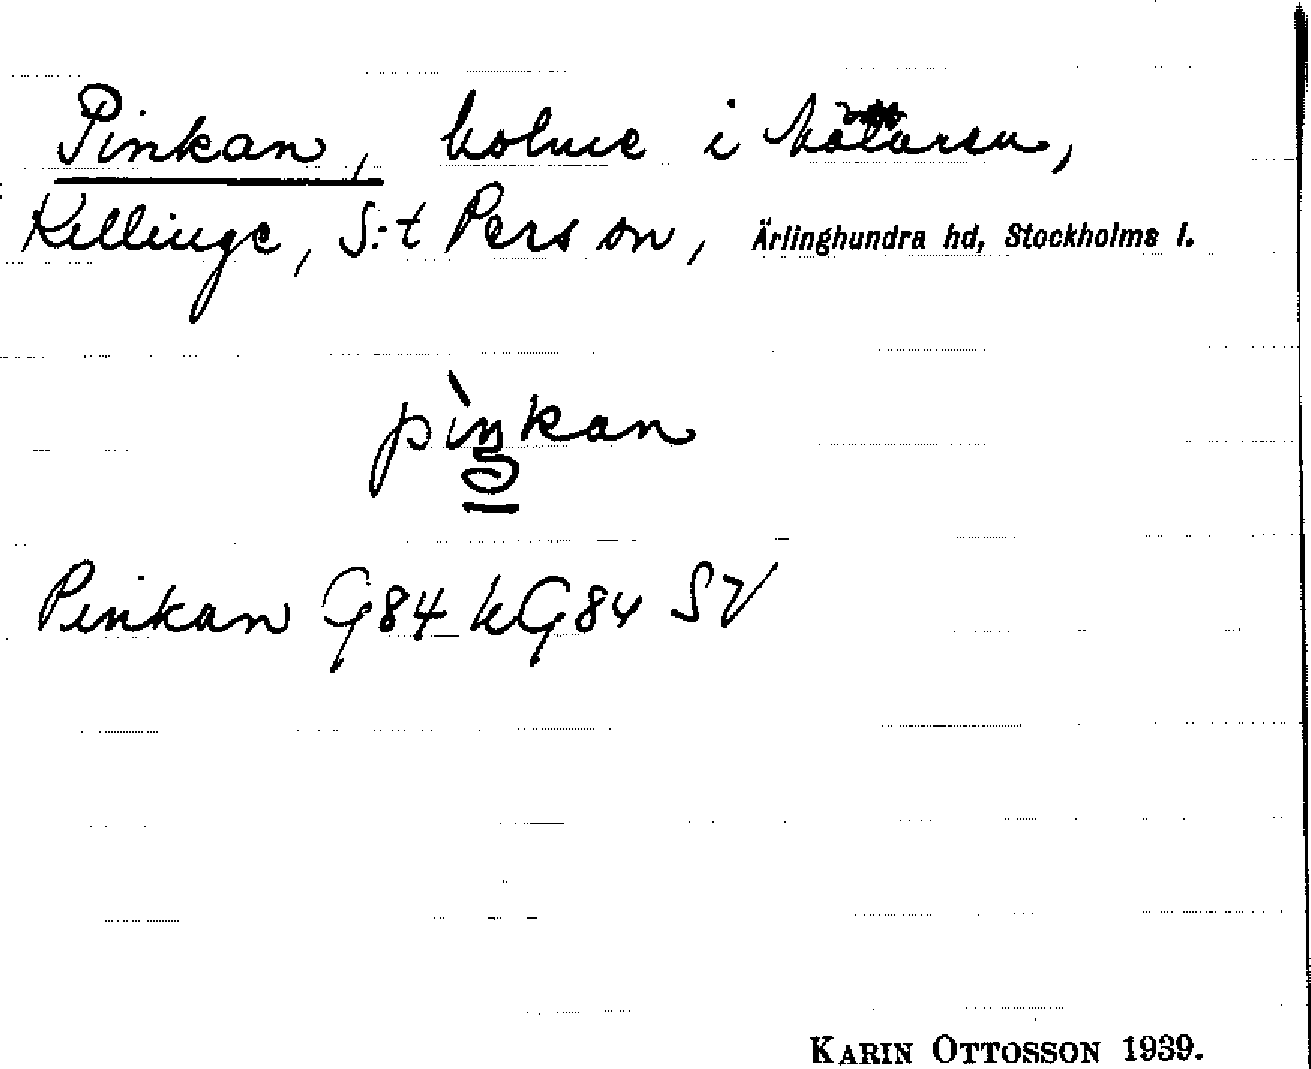 Pinkan, holme i Mälaren,
Killinge, S:t Pers sn, Ärlinghundra hd, Stockholms l.
pìŋkan
Pinkan G84 kG84 SV
KARIN OTTOSSON 1939.